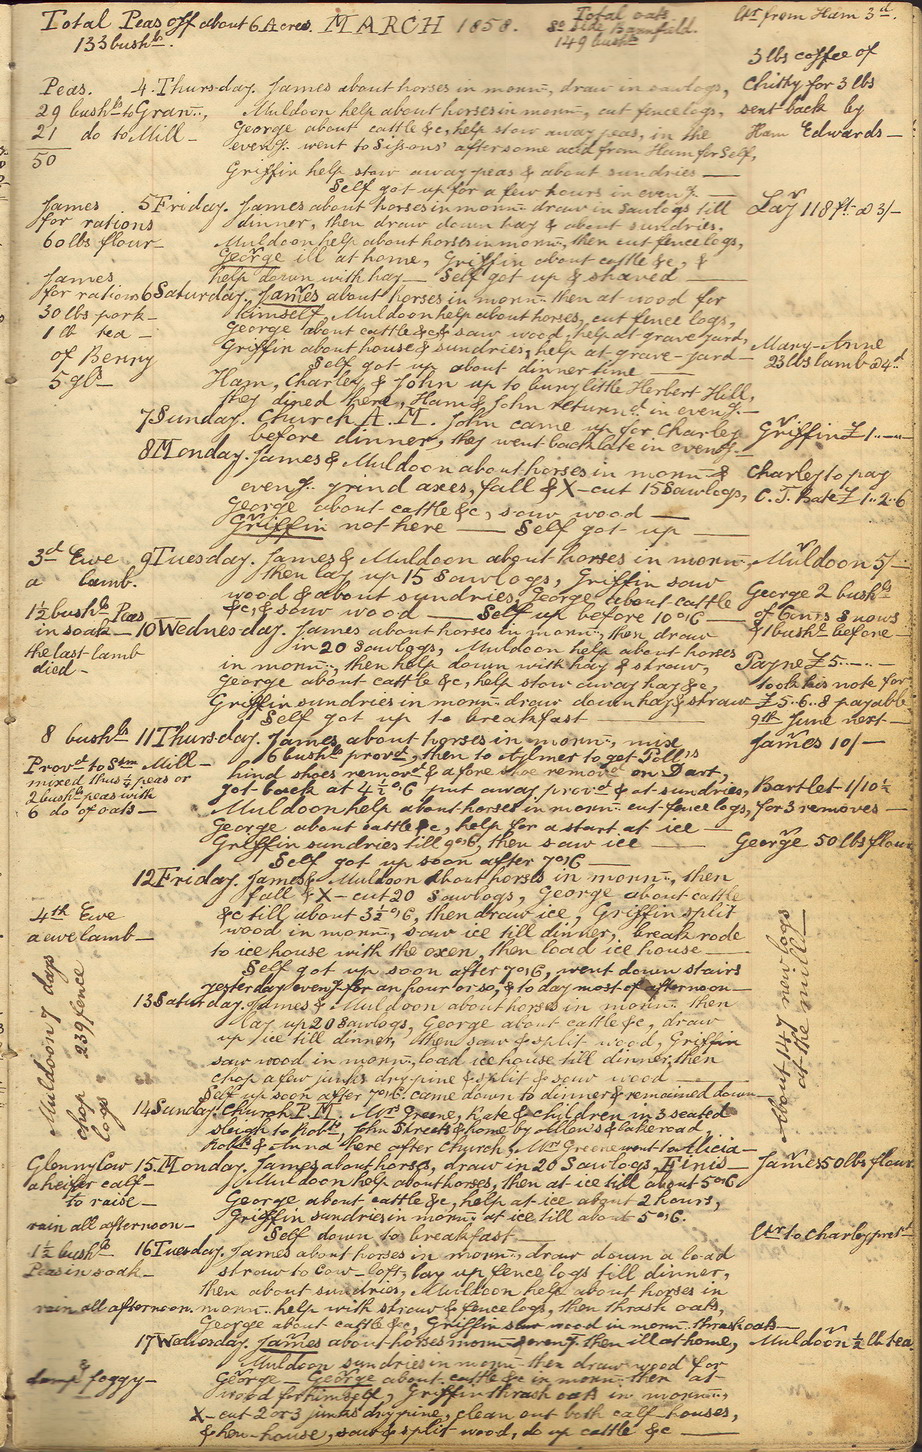 Total Peas off about 6 Acres. MARCH 1858. Total oats
133 bushls. So side Barnfield.
149 bushls
Ltr from Ham 3d.
3 lbs coffee of
Chitty for 3 lbs
sent back by
Ham Edwards —
Peas. 4. Thursday. James about horses in mornn., draw in sawlogs,
29 bushls to Gran.., Muldoon help about horses in mornn., cut fence logs,
21 do to Mill — George about cattle &c, help stow away peas, in the
50 eveng. went to Sissons' after some acid from Ham for Self,
Griffin help stow away peas & about sundries —
Self got up for a few hours in eveng. —
James 5 Friday. James about horses in mornn. draw in Sawlogs till Lay 118 ft @ 3/-
for rations dinner, then draw down hay & about sundries.
60 lbs flour — Muldoon help about horses in mornn., then cut fence logs,
George ill at home, Griffin about cattle &c, &
help down with hay — Self got up & shaved —
James
for rations 6 Saturday. James about horses in mornn. then at wood for
30 lbs pork — himself, Muldoon help about horses, cut fence logs,
1 lb tea — George about cattle &c & saw wood, help at grave yard,
of Benny Griffin about house & sundries, help at grave-yard — Mary-Anne
5 gls — Self got up about dinner time — 23 lbs lamb @ 4d.
Ham, Charley & John up to bury little Herbert Hill,
they dined there, Ham & John returnd. in eveng. —
7 Sunday. Church A.M. John came up for Charley Griffin £1..—..—
before dinner, they went back late in eveng. —
8 Monday. James & Muldoon about horses in mornn & Charley to pay
eveng. grind axes, fall & X-cut 15 Sawlogs, C. T. Bate £1..2..6
George about cattle &c, saw wood —
Griffin not here — Self got up —
3d Ewe 9 Tuesday. James & Muldoon about horses in mornn., Muldoon 5/-
a lamb. then lay up 15 Sawlogs, Griffin saw
wood & about sundries, George about cattle George 2 bushls
1½ bushls Peas &c, & saw wood — Self up before 10 o'C — of
in soak — 10 Wednesday. James about horses in mornn., then draw & 1 bushl before —
the last lamb in 20 Sawlogs, Muldoon help about horses
died — in mornn., then help down with hay & straw, Payne £5..—..—
George about cattle &c, help stow away hay &c, took his note for
Griffin sundries in mornn. draw down hay & straw £5..6..8 payable
Self got up to breakfast — 9th June next —
8 bushls 11 Thursday. James about horses in mornn., mix James 10/-
Provd to Stm Mill — 6 bushls provd, then to Aylmer to get Poll's
mixed thus ½ peas or hind shoes removd & a fore shoe removd on Dart,
2 bushls peas with got back at 4½ o'C put away provd & at sundries, Bartlet 1/10½
6 do of oats — Muldoon help about horses in mornn. cut fence logs, for 3 removes —
George about cattle &c, help for a start at ice —
Griffin sundries till 9 o'C, then saw ice — George 50 lbs flour
Self got up soon after 7 o'C —
12 Friday. James & Muldoon about horses in mornn., then
fall & X-cut 20 Sawlogs, George about cattle
4th Ewe &c till about 3½ o'C, then draw ice, Griffin split
a ewe lamb — wood in mornn., saw ice till dinner, break rode
to ice house with the oxen, then load ice house —
Self got up soon after 7 o'C, went down stairs
yesterday eveng for an hour or so, & to day most of afternoon —
Muldoon 7 days
chop 239 fence
logs
About 147 new logs
at the mill —
13 Saturday. James & Muldoon about horses in mornn. then
lay up 20 Sawlogs, George about cattle &c, draw
up ice till dinner, then saw & split wood, Griffin
saw wood in mornn., load ice house till dinner, then
chop a few junks dry pine & split & saw wood —
Self up soon after 7 o'C. came down to dinner & remained down —
14 Sunday. Church P.M. Mrs Greene, Kate & children in 3 seated
sleigh to Robts, John Streets & home by Allen's & lake road,
Robt & Anna here after Church, Mr Greene went to Alicia —
Glenny Cow 15. Monday. James about horses, draw in 20 Sawlogs, Finis — James 50 lbs flour
a heifer calf — Muldoon help about horses, then at ice till about 5 o'C
to raise — George about cattle &c, help at ice about 2 hours,
Griffin sundries in mornn. at ice till about 5 o'C.
rain all afternoon — Self down to breakfast — Ltr to Charley prest
1½ bushls 16 Tuesday. James about horses in mornn., draw down a load
Peas in soak — straw to Cow-loft, lay up fence logs till dinner,
then about sundries, Muldoon help about horses in
rain all afternoon. mornn. help with straw & fence logs, then thrash oats,
George about cattle &c, Griffin saw wood in mornn. thrash oats —
17 Wednesday. James about horses mornn & eveng. then ill at home, Muldoon ½ lb tea.
Muldoon sundries in mornn then draw wood for
damp & foggy — George — George about cattle &c in mornn. then at
wood for himself, Griffin thrash oats in mornn.,
X-cut 2 or 3 junks dry pine, clean out both calf-houses,
& hen-house, saw & split wood, do up cattle &c —